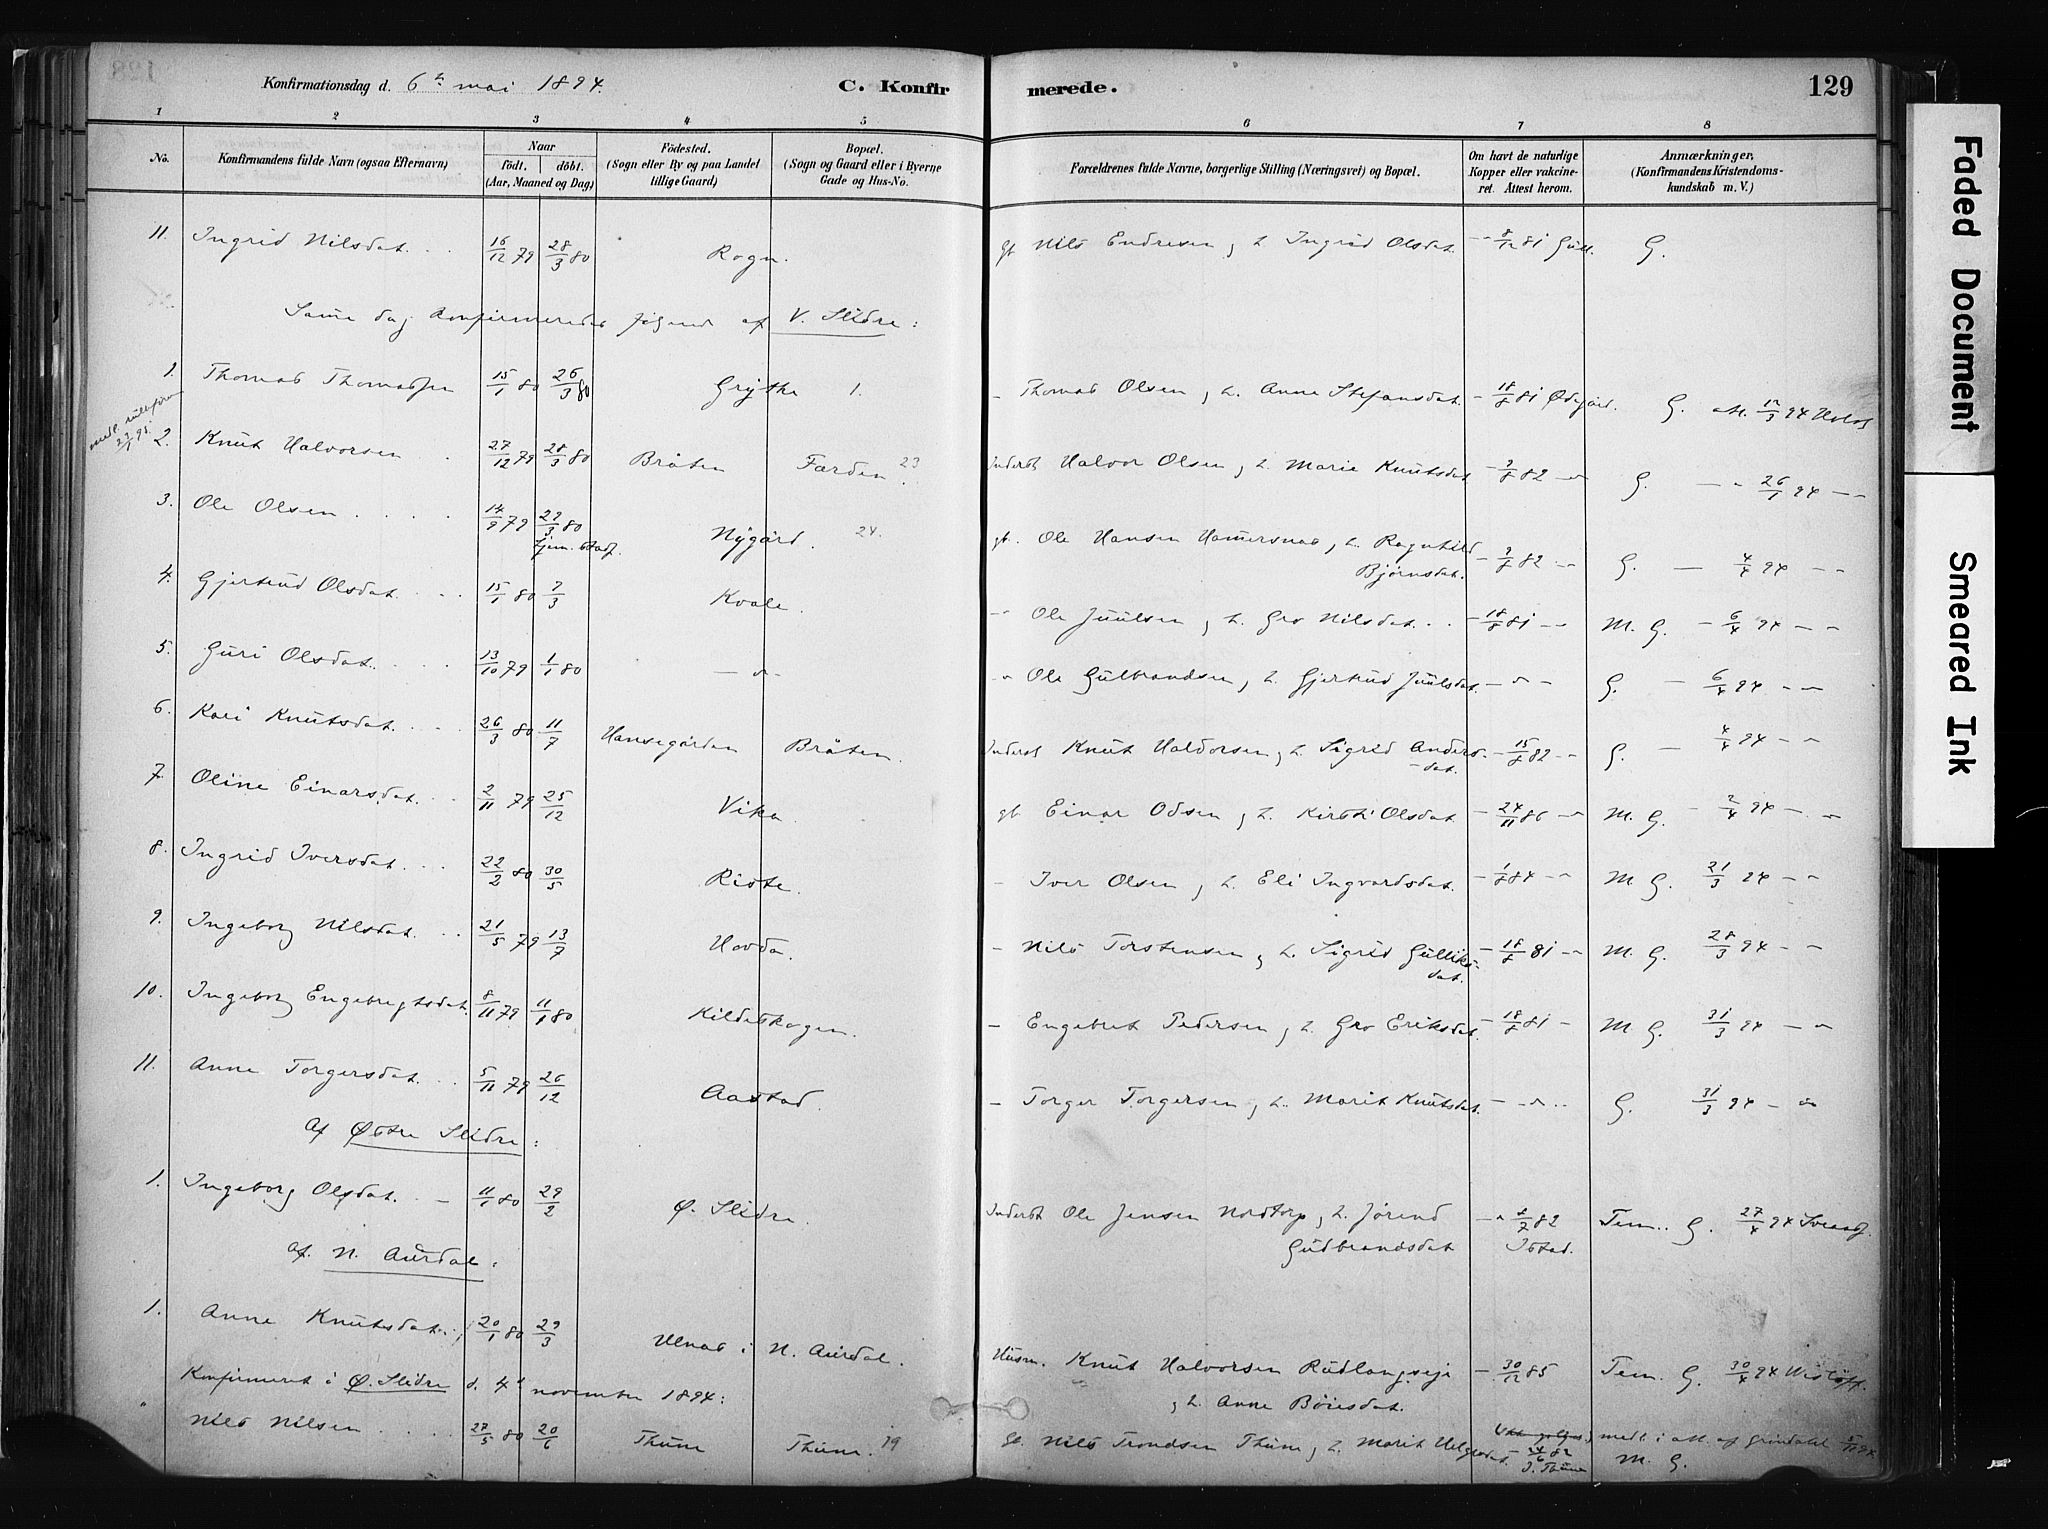 Konfirmationsdag d. 6te mai 1894. C. Konfirmerede. 129
1 2 3 4 5 6 7 8
No. Konfirmandens fulde Navn (ogsaa Efternavn) Naar født. døbt. (Aar, Maaned og Dag) Fødested. (Sogn eller By og paa Landet tillige Gaard) Bopæl. (Sogn og Gaard eller i Byerne Gade og Hus-No. Forældrenes fulde Navne, borgerlige Stilling (Næringsvei) og Bopæl. Om havt de naturlige Kopper eller vakcineret. Attest herom. Anmærkninger, (Konfirmandens Kristendomskundskab m. V.)
11. Ingrid Nilsdat. 16/12 79 28/3 80 Rogn. gb. Nils Endresen, h. Ingrid Olsdat. 8/12 81 G.
Same dag konfirmeredes følgende af V. Slidre:
1. Thomas Thomassen 15/1 80 26/3 80 1. Thomas Olsen, h. Anne Stefansdat. 18/8 81 G. att. 94
2. Knut Halvorsen 27/12 79 28/3 80 Bråten Færden 23 Inderst Halvor Olsen, h. Marie Knutsdat. 82 G. 26/1 94
3. Ole Olsen 14/9 79 29/3 80 Nygård. 24. gb. Ole Hansen h. Ragnhild Bjørnsdat. 82 G. 4/4 94
4. Gjertrud Olsdat. 15/1 80 7/3 Kvale. Ole Juulsen, h. Gro Nilsdat. 18/8 81 M. G. 6/4 94
5. Guri Olsdat. 13/10 79 1/1 80 Ole Gulbrandsen, h. Gjertrud Juulsdat. G. 6/4 94
6. Kari Knutsdat. 26/3 80 11/7 Hansegården Bråten. Inderst Knut Haldorsen, h. Sigrid Andersdat. 15/8 82 G. 4/4 94
7. Oline Einarsdat. 2/11 79 25/12 Vika. gb. Einar Odsen, h. Kirsti Olsdat. 24/11 86 M. G. 2/4 94
8. Ingrid Iversdat. 22/2 80 30/5 Riste. Iver Olsen, h. Eli Ingvardsdat. 1/8 84 M. G. 21/3 94
9. Ingeborg Nilsdat. 21/5 79 13/7 Hovda. Nils Torstensen, h. Sigrid Gulliksdat. 18/8 81 M. G. 28/3 94
10. Ingeborg Engebregtsdat. 8/11 79 11/1 80 Kildeskogen. Engebret Pedersen, h. Gro Eriksdat. 18/8 81 M G. 31/3 94
11. Anne Torgersdat. 5/11 79 26/12 Aastad. Torger Torgersen, h. Marit Knutsdat. G. 31/3 94
Af Østre Slidre:
1. Ingeborg Olsdat. 11/1 80 29/2 Ø. Slidre. Inderst Ole Jensen Nordtorp, h. Jørend Gudbrandsdat 82 Istad. Tem. G. 27/4 94
af. N. Aurdal:
1. Anne Knutsdat. 20/1 80 29/3 Ulnes i N. Aurdal. Husm. Knut Halvorsen Rudlangseje, h. Anne Bøiesdat. 30/12 85 Tem. G. 30/4 94
Konfirmeret i Ø. Slidre d. 4de november 1894:
Nils Nilsen 27/5 80 20/6 Thune Thune. 19 gb. Nils Trondsen Thune, h. Marit Helgesdat. 82 medl. i att. af M. G.
Faded Document
Smeared Ink